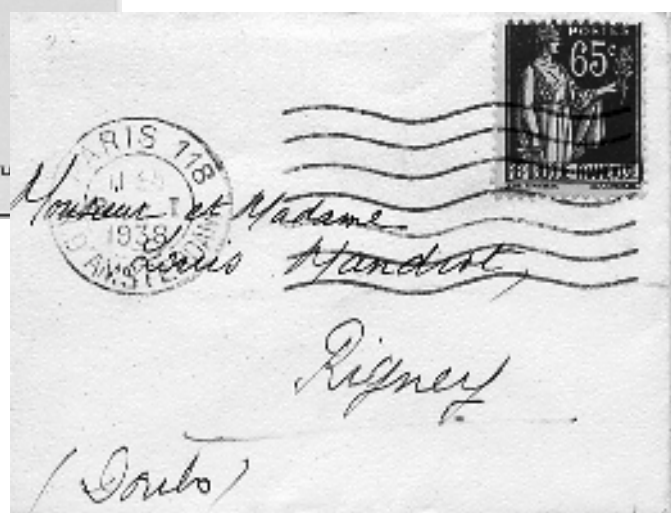 POSTES
65c
REPUBLIQUE FRANÇAISE
PARIS 118
1938
D'AMSTERDAM
Monsieur et Madame
Louis Mandrot,
Rigney
(Doubs)